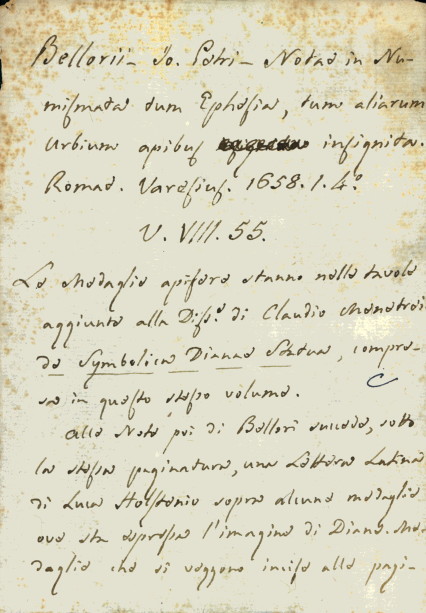 Bellorii - Jo. Petri - Notae in Nu-
mismata tum Ephesia, tum aliarum
Urbium apibus insignita.
Romae. Varesius. 1658. 1. 4º
V. VIII. 55.
Le Medaglie apifere stanno nelle tavole
aggiunte alla Dissº di Claudio Menetrei
de Symbolica Dianae Statua, compre-
sa in questo stesso volume.
Alle Note poi di Bellori succede, sotto
la stessa paginatura, una Lettera Latina
di Luca Holstenio sopra alcune medaglie
ove sta espressa l'imagine di Diana. Me-
daglie che si veggono incise alle pagi-